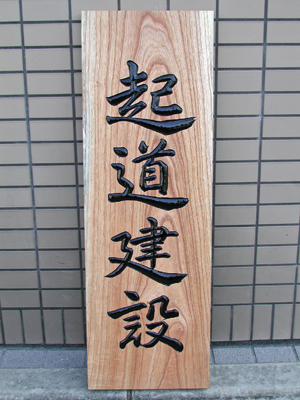 起道建設